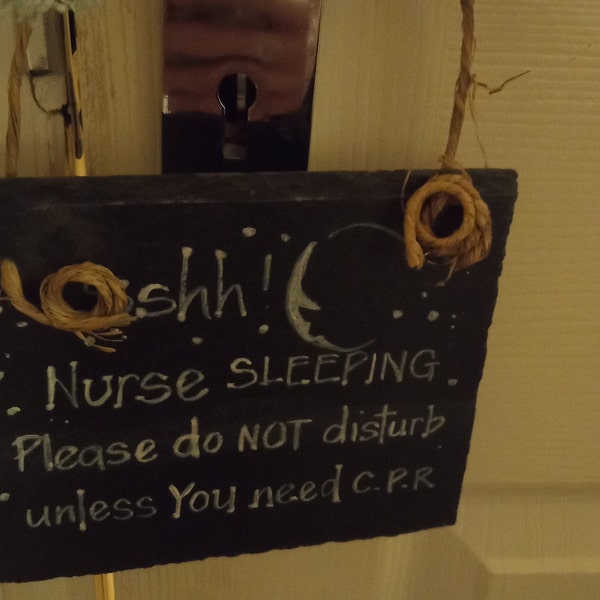 sshh!
Nurse SLEEPING.
Please do NOT disturb
unless You need C.P.R